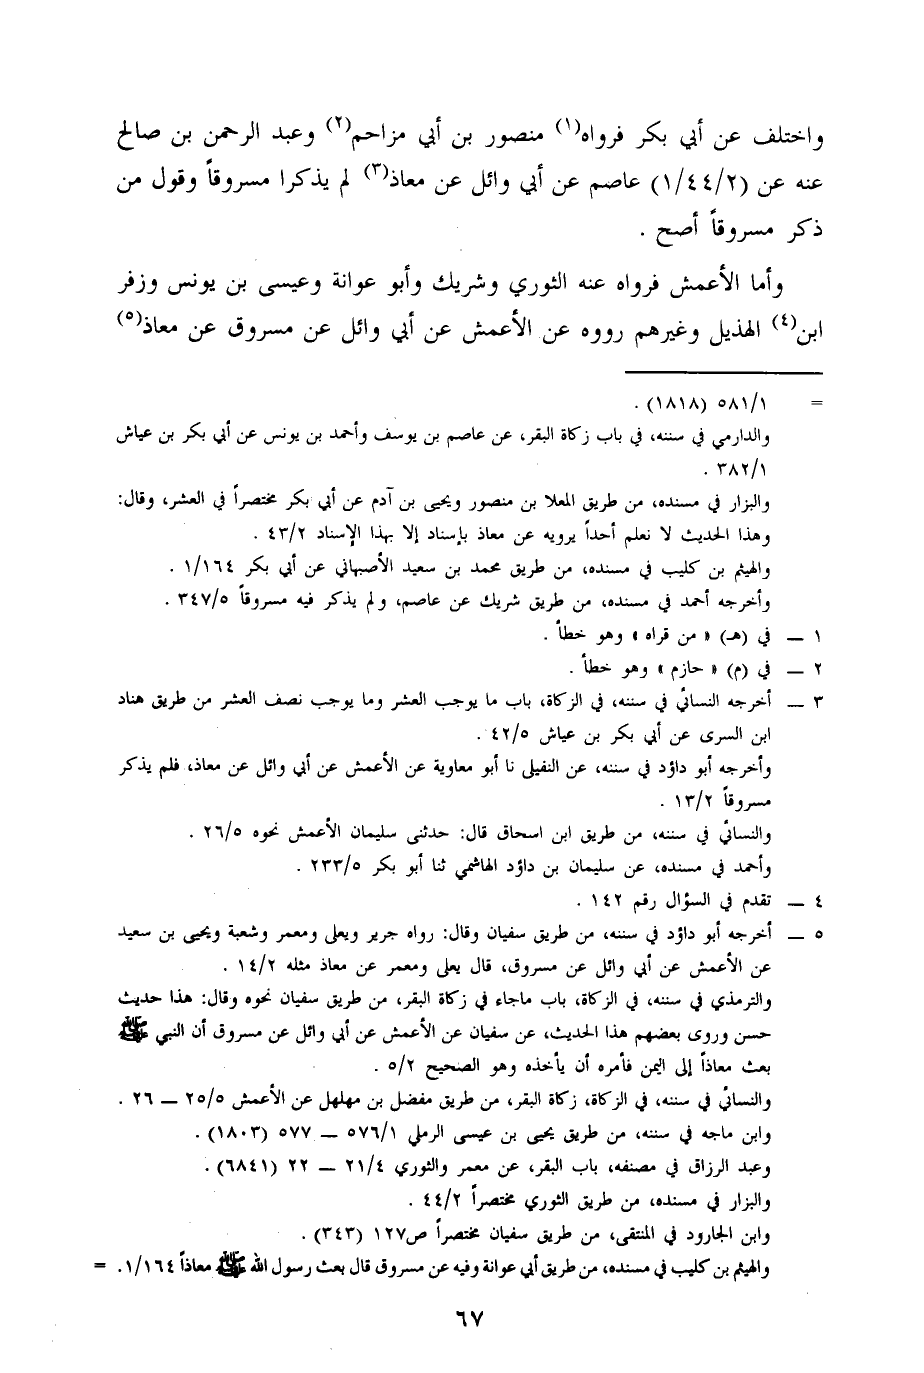 واختلف عن أبي بكر فرواه(١) منصور بن أبي مزاحم(٢) وعبد الرحمن بن صالح
عنه عن (١/٤٤/٢) عاصم عن أبي وائل عن معاذ(٣) لم يذكرا مسروقاً وقول من
ذكر مسروقاً أصح .
وأما الأعمش فرواه عنه الثوري وشريك وأبو عوانة وعيسى بن يونس وزفر
ابن(٤) الهذيل وغيرهم رووه عن الأعمش عن أبي وائل عن مسروق عن معاذ(٥)
= ٥٨١/١ (١٨١٨) .
والدارمي في سننه، في باب زكاة البقر، عن عاصم بن يوسف وأحمد بن يونس عن أبي بكر بن عياش
٣٨٢/١ .
والبزار في مسنده، من طريق المعلا بن منصور ويحيى بن آدم عن أبي بكر مختصراً في العشر، وقال:
وهذا الحديث لا نعلم أحداً يرويه عن معاذ بإسناد إلا بهذا الإسناد ٤٣/٢ .
والهيثم بن كليب في مسنده، من طريق محمد بن سعيد الأصبهاني عن أبي بكر ١/١٦٤ .
وأخرجه أحمد في مسنده، من طريق شريك عن عاصم، ولم يذكر فيه مسروقاً ٣٤٧/٥ .
١ ــ في (هـ) « من قراه » وهو خطأ .
٢ ــ في (م) « حازم » وهو خطأ .
٣ ــ أخرجه النسائي في سننه، في الزكاة، باب ما يوجب العشر وما يوجب نصف العشر من طريق هناد
ابن السرى عن أبي بكر بن عياش ٤٢/٥ .
وأخرجه أبو داؤد في سننه، عن النفيلي نا أبو معاوية عن الأعمش عن أبي وائل عن معاذ، فلم يذكر
مسروقاً ١٣/٢ .
والنسائي في سننه، من طريق ابن اسحاق قال: حدثنى سليمان الأعمش نحوه ٢٦/٥ .
وأحمد في مسنده، عن سليمان بن داؤد الهاشمي ثنا أبو بكر ٢٣٣/٥ .
٤ ــ تقدم في السؤال رقم ١٤٢ .
٥ ــ أخرجه أبو داؤد في سننه، من طريق سفيان وقال: رواه جرير ويعلى ومعمر وشعبة ويحيى بن سعيد
عن الأعمش عن أبي وائل عن مسروق، قال يعلى ومعمر عن معاذ مثله ١٤/٢ .
والترمذي في سننه، في الزكاة، باب ماجاء في زكاة البقر، من طريق سفيان نحوه وقال: هذا حديث
حسن وروى بعضهم هذا الحديث، عن سفيان عن الأعمش عن أبي وائل عن مسروق أن النبي ﷺ
بعث معاذاً إلى اليمن فأمره أن يأخذه وهو الصحيح ٥/٢ .
والنسائي في سننه، في الزكاة، زكاة البقر، من طريق مفضل بن مهلهل عن الأعمش ٢٥/٥ ــ ٢٦ .
وابن ماجه في سننه، من طريق يحيى بن عيسى الرملي ٥٧٦/١ ــ ٥٧٧ (١٨٠٣) .
وعبد الرزاق في مصنفه، باب البقر، عن معمر والثوري ٢١/٤ ــ ٢٢ (٦٨٤١) .
والبزار في مسنده، من طريق الثوري مختصراً ٤٤/٢ .
وابن الجارود في المنتقى، من طريق سفيان مختصراً ص١٢٧ (٣٤٣) .
والهيثم بن كليب في مسنده، من طريق أبي عوانة وفيه عن مسروق قال بعث رسول الله ﷺ معاذاً ١/١٦٤. =
٦٧